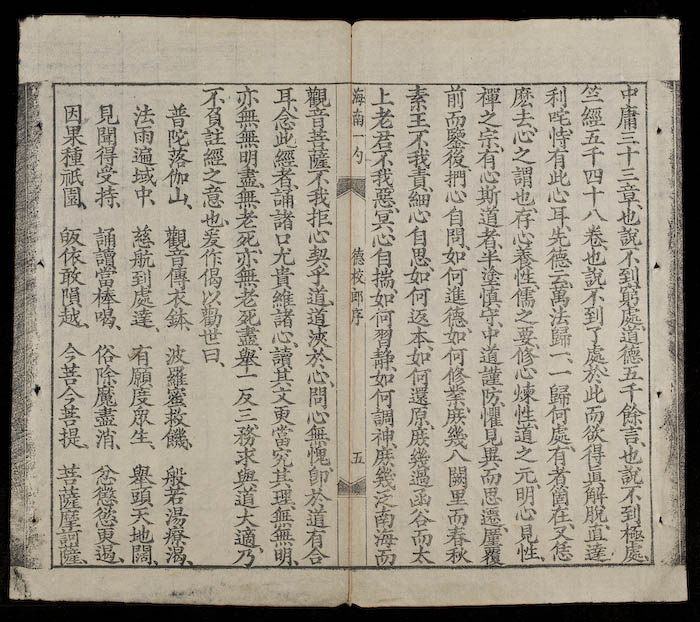 中庸三十三章、也說不到窮處、道德五千餘言、也說不到極處、
竺經五千四十八卷、也說不到了處、於此而欲得眞解脫、直達
利咤、恃有此心耳、先德云、萬法歸一、一歸何處、有者箇在、又恁
麽去、心之謂也、存心養性、儒之要、修心煉性、道之元、明心見性、
禪之宗、有心斯道者、半塗愼守、中道謹防、懼見異而思遷、厪覆
前而鑒後、捫心自問、如何進德、如何修業、庶幾入闕里、而春秋
素王、不我責、細心自思、如何返本、如何還原、庶幾過函谷、而太
上老君、不我惡、冥心自揣、如何習靜、如何調神、庶幾泛南海、而
海南一勺
德校郎序
五
觀音菩薩不我拒、心契乎道、道浹於心、問心無愧、卽於道有合
耳、念此經者、誦諸口、尤貴維諸心、讀其文、更當究其理、無無明、
亦無無明盡、無老死、亦無老死盡、舉一反三、務求與道大適、乃
不負註經之意也、爰作偈以勸世曰、
普陀落伽山、觀音傳衣鉢、波羅蜜救饑、般若湯療渴、
法雨遍域中、慈航到處達、有願度衆生、舉頭天地闊、
見聞得受持、誦讀當棒喝、俗除魔盡消、忿懲慾更遏、
因果種祇園、皈依敢隕越、今菩今菩提、菩薩摩訶薩、